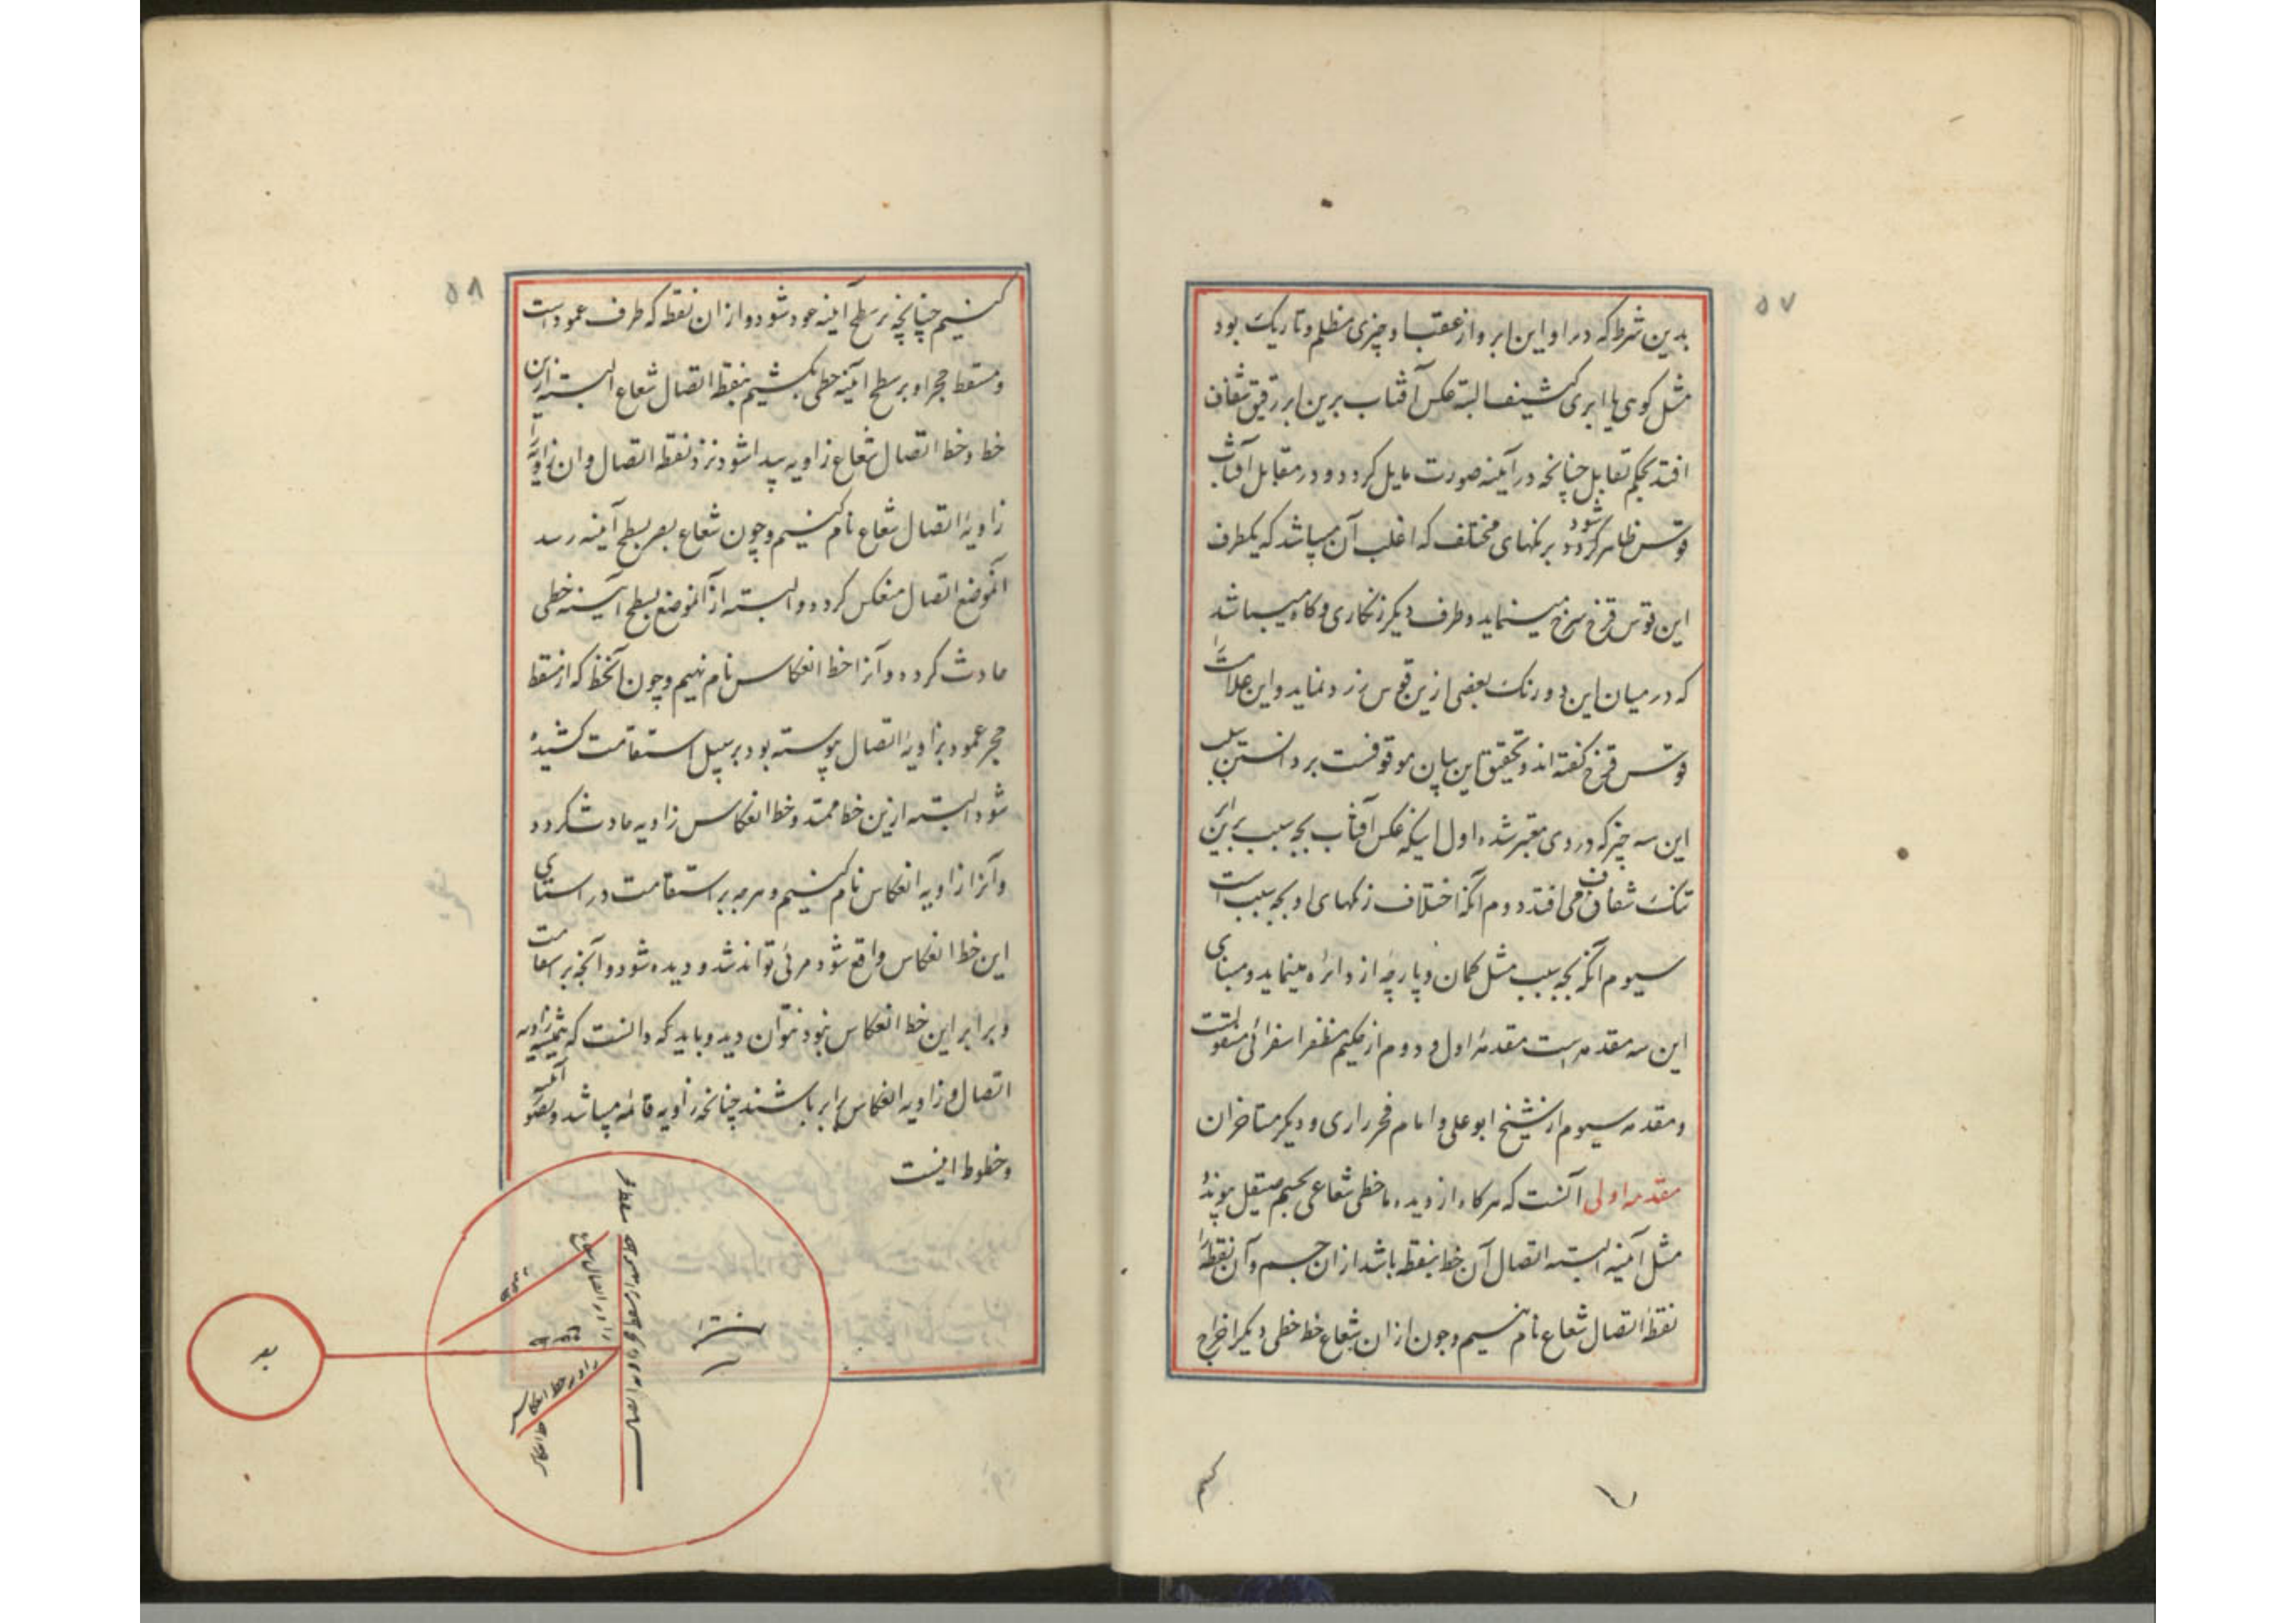 ۵۷
بدین شرط که در او این ابر و از عقب او چیزی مظلم و تاریک بود
مثل کوهی یا ابری کثیف البته عکس آفتاب برین ابر رقیق شفاف
افتد بحکم تقابل چنانچه در آینه صورت مایل کردد و در مقابل آفتاب
قوس ظاهر کردد شود برنکهای مختلف که اغلب آن میباشد که یکطرف
این قوس قزح سرخ مینماید و طرف دیکر زنکاری و کاه میباشد
که در میان این دو رنک بعضی ازین قوس زرد نماید و این علامت را
قوس قزح کفته اند و تحقیق این بیان موقوفست بر دانستن سبب
این سه چیز که در وی معتبر شده اول اینکه عکس آفتاب بچه سبب برین ابر
تنک شفاف می افتد دوم آنکه اختلاف رنکهای او بچه سبب است
سیوم آنکه بچه سبب مثل کمان و پارچه از دائره مینماید و مبنای
این سه مقدمه است مقدمه اول و دوم از حکیم مظفر اسفرائی منقولست
و مقدمه سیوم از شیخ ابو علی و امام فخر رازی و دیکر متاخران
مقدمه اولی آنست که هرکاه از دیده ما خطی شعاعی بجسم صیقل پیوندد
مثل آینه البته اتصال آن خط بنقطه باشد از ان جسم و آن نقطه را
نقطه اتصال شعاع نام نهیم و چون از ان شعاع خط خطی دیکر اخراج
کنیم
۵۸
کنیم چنانچه بر سطح آینه عمود شود و از ان نقطه که طرف عمود است
و مسقط حجر او بر سطح آینه خطی بکشیم بنقطه اتصال شعاع البته ازین
خط و خط اتصال شعاع زاویه پیدا شود نزد نقطه اتصال و ان زاویه را
زاویه اتصال شعاع نام کنیم و چون شعاع بصر بسطح آینه رسد
آنموضع اتصال منعکس کردد و البته از آنموضع بسطح آینه خطی
حادث کردد و آنرا خط انعکاس نام نهیم و چون آنخط که از مسقط
حجر عمود بزاویه اتصال پیوسته بود بر سبیل استقامت کشیده
شود البته ازین خط ممتد و خط انعکاس زاویه حادث کردد
و آنرا زاویه انعکاس نام کنیم و هرچه بر استقامت در استای
این خط انعکاس واقع شود مرئی تواند شد و دیده شود و آنچه بر استقامت
و برابر این خط انعکاس نبود نتوان دید و باید که دانست که همیشه زاویه
اتصال و زاویه انعکاس برابر باشند چنانچه زاویه قائمه میباشد و تصویر آینه
و خطوط اینست
زاویه اتصال شعاع
زاویه خط انعکاس
خط انعکاس